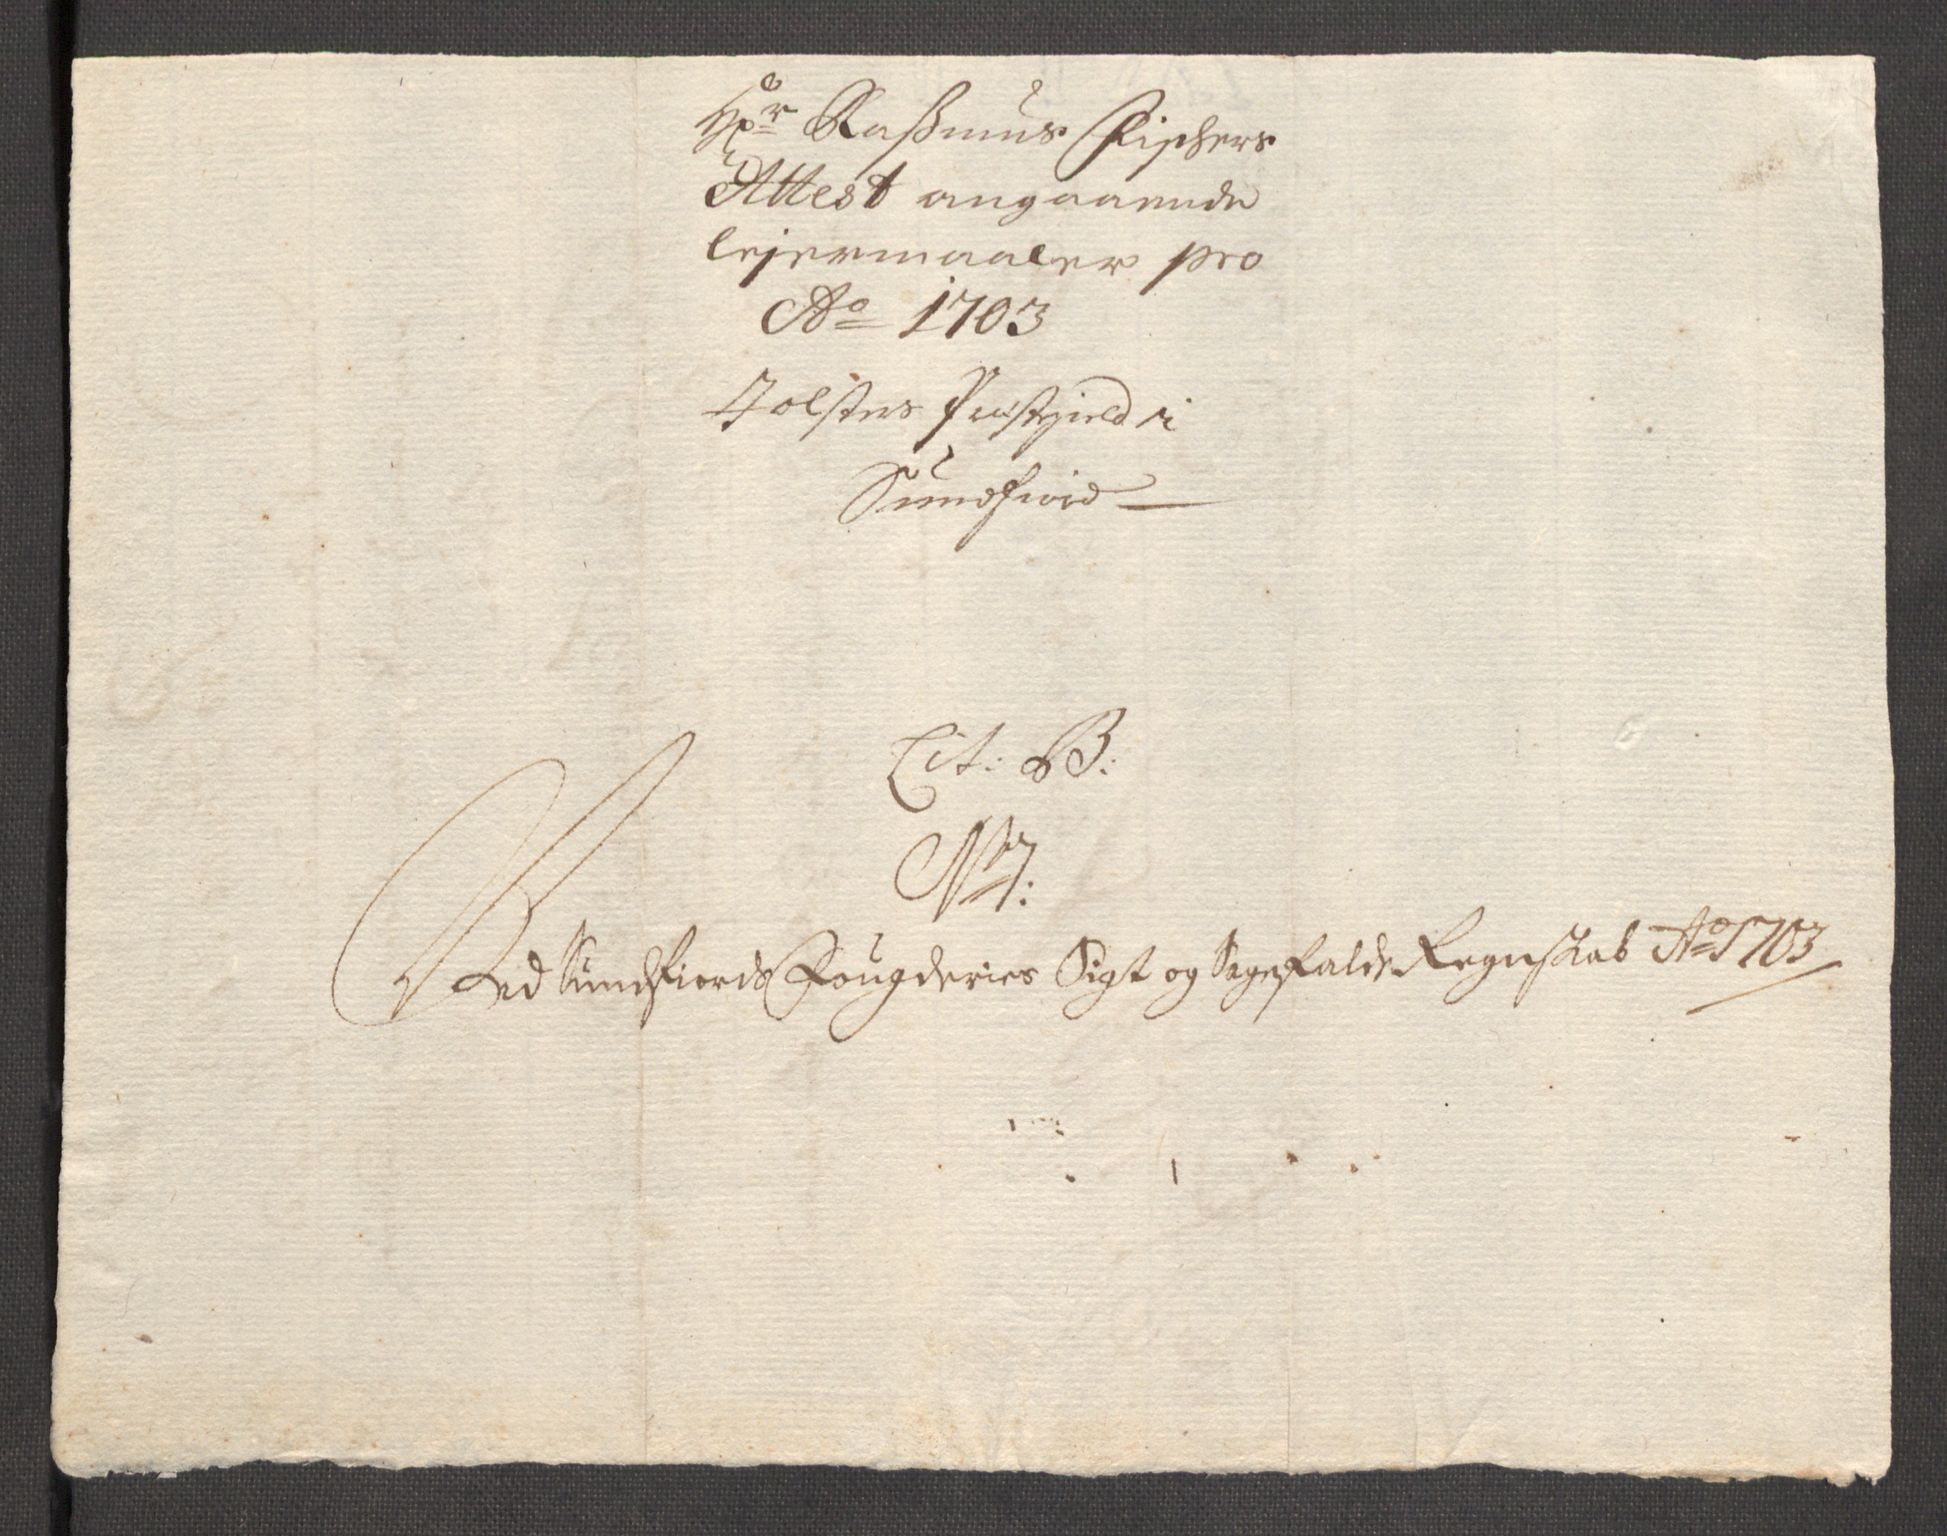 Hr Rasmus Fischers
Attest angaaende
lejermaaler pro
Ao 1703
Jolsters Præstegield i
Sundfiord
Lit: B:
No 7:
Ved Sundfiords Fougderies Sigt og Sagefalds Regnskab Ao 1703